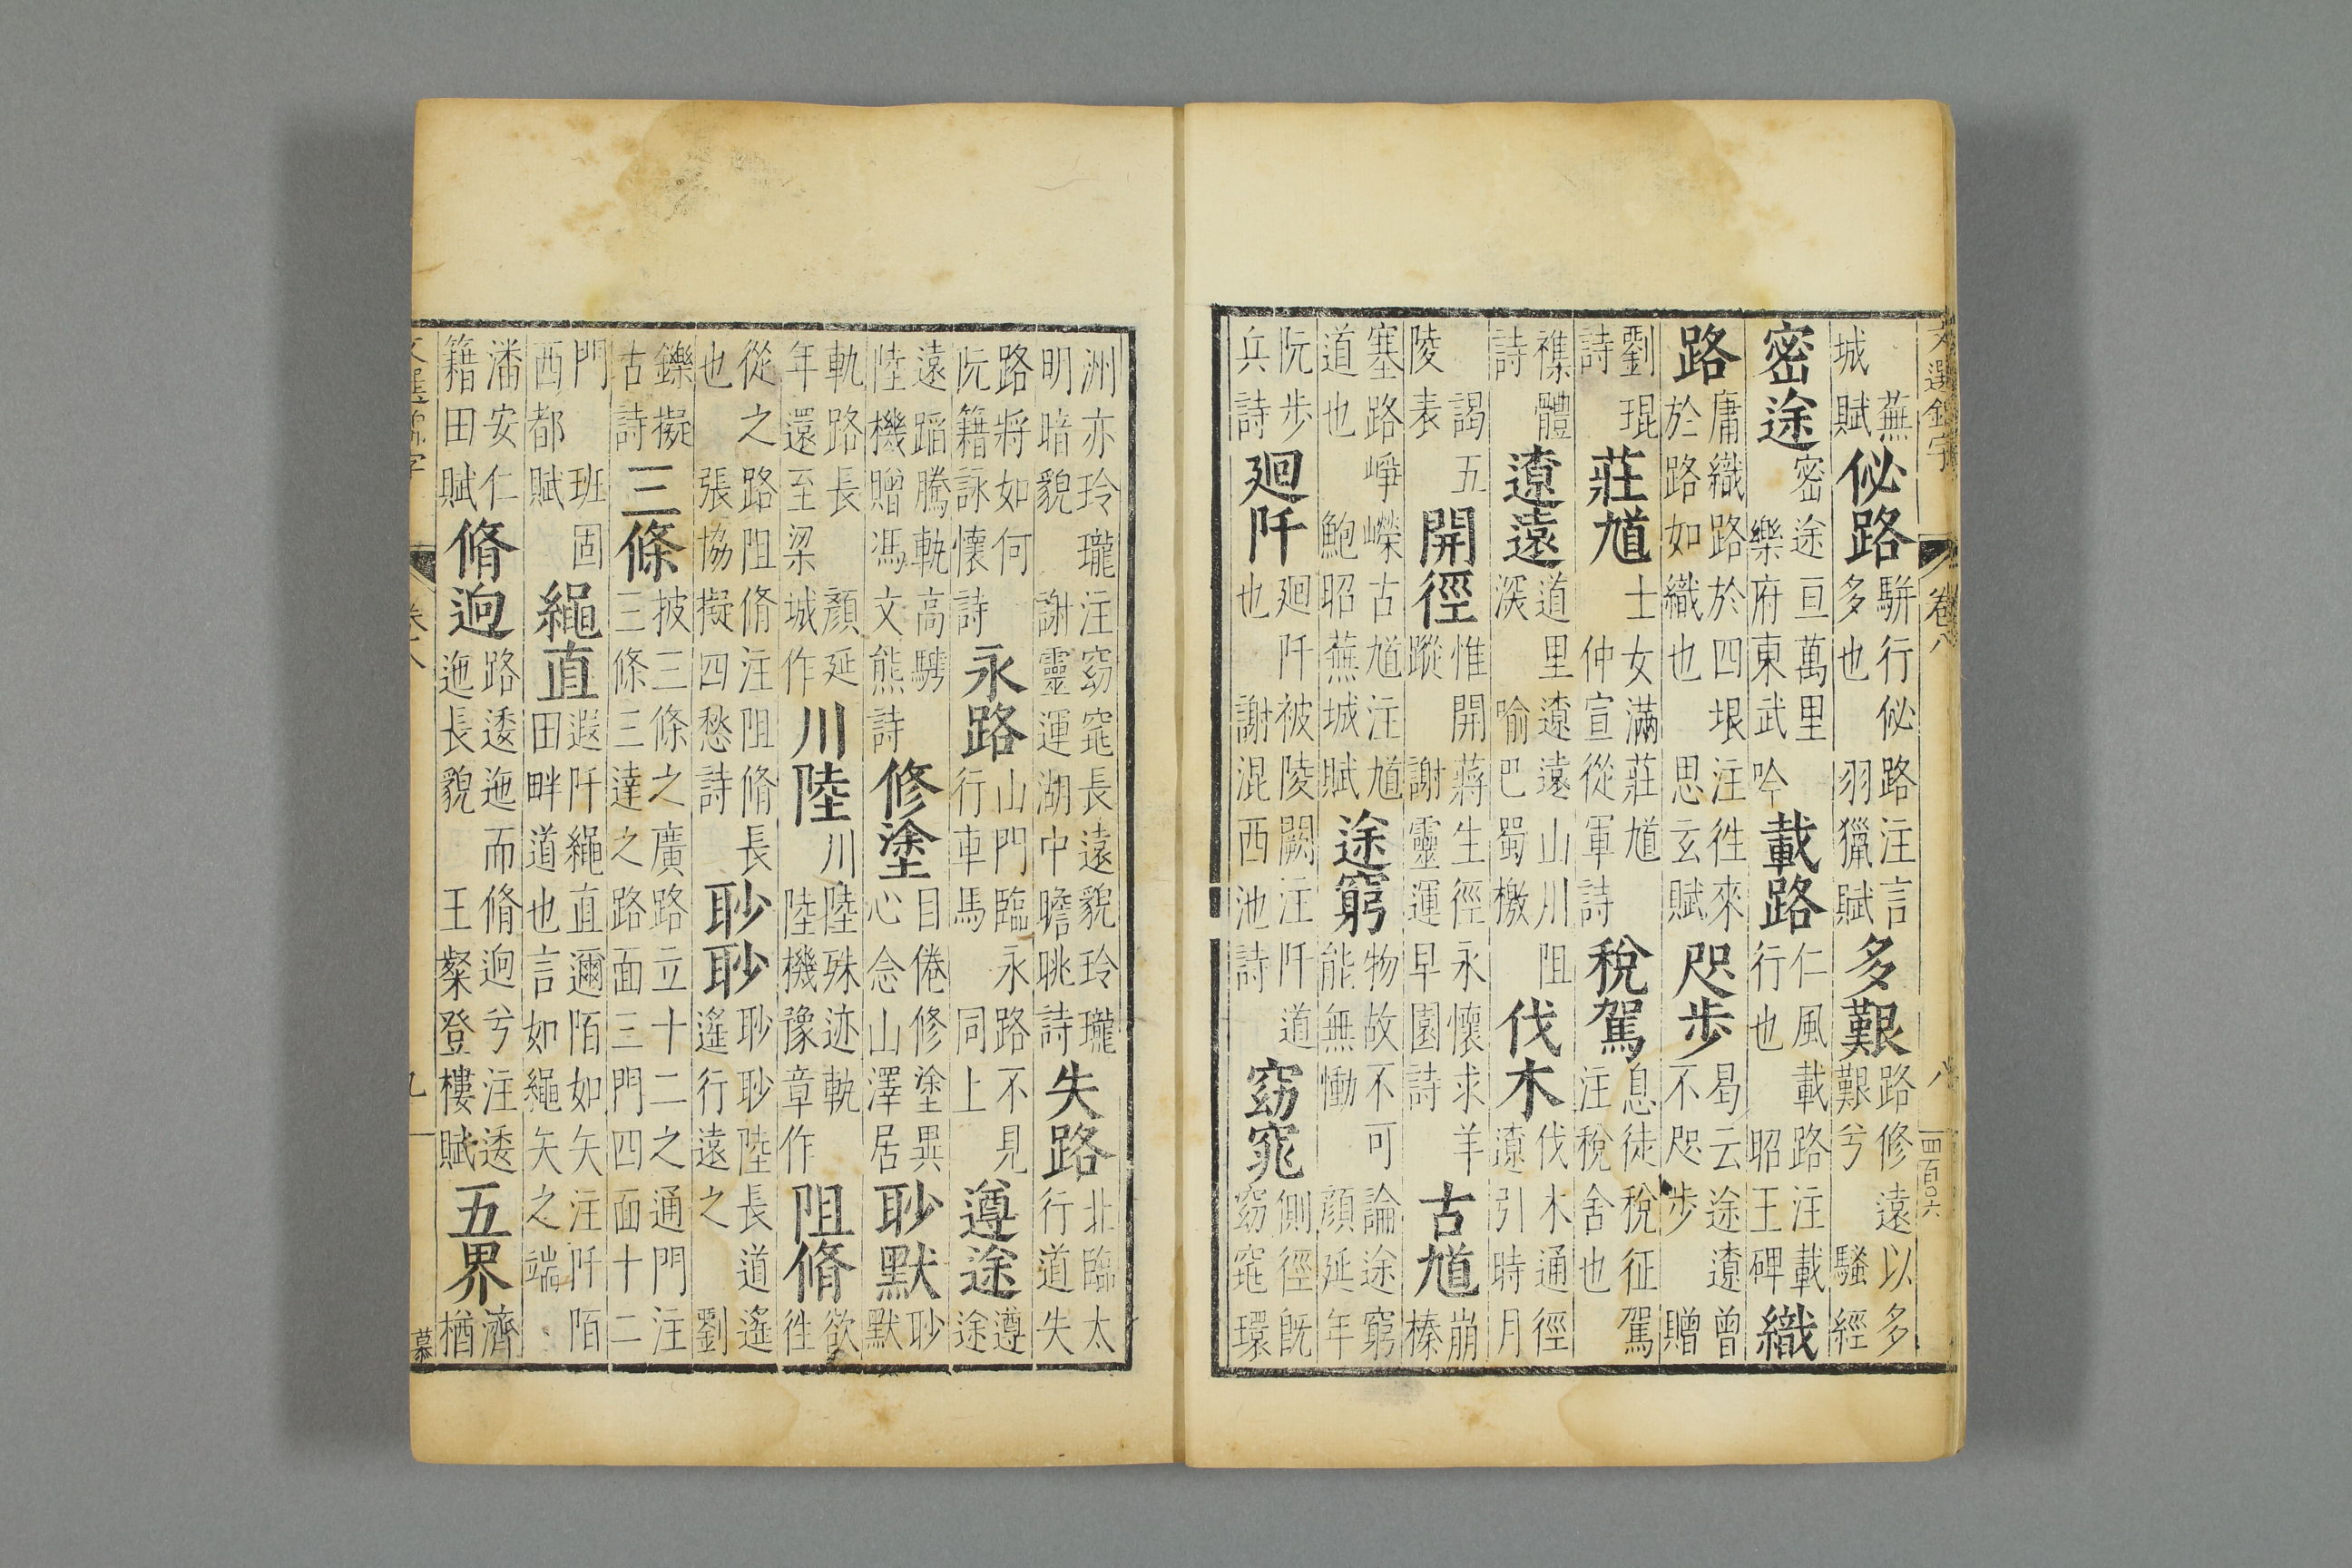 文選錦字 卷八 八 四百〇六
蕪城賦佖路駢行佖路注言多也羽獵賦多艱路修遠以多艱兮騷經
密途密途亘萬里樂府東武吟載路仁風載路注載行也昭王碑織
路庸織路於四垠注徃來於路路如織也思玄賦咫步曷云途遼曾不咫步贈
劉琨詩莊馗士女滿莊馗仲宣從軍詩稅駕息徒稅征駕注稅舍也
襍體詩遼遠道里遼遠山川阻深喻巴蜀檄伐木伐木通徑遼引時月
謁五陵表開徑惟開蔣生徑永懷求羊蹤謝靈運早園詩古馗崩榛
塞路崢嶸古馗注馗道也鮑昭蕪城賦途窮物故不可論途窮能無慟顏延年
阮步兵詩廻阡廻阡被陵闕注阡道也謝混西池詩窈窕側徑既窈窕環
洲亦玲瓏注窈窕長遠貌玲瓏明暗貌謝靈運湖中瞻眺詩失路北臨太行道失
路將如何阮籍詠懷詩永路山門臨永路不見行車馬同上遵途遵途
遠蹈騰軌高騁陸機贈馮文熊詩修塗目倦修塗異心念山澤居眇默眇默
軌路長顏延年還至梁城作川陸川陸殊迹軌陸機豫章作阻脩欲徃
從之路阻脩注阻脩長也張協擬四愁詩眇眇眇眇陸長道遙遙行遠之劉
鑠擬古詩三條披三條之廣路立十二之通門注三條三達之路面三門四面十二
門班固西都賦繩直遐阡繩直邇陌如矢注阡陌田畔道也言如繩矢之端
潘安仁籍田賦脩迥路逶迤而脩迥兮注逶迤長貌王粲登樓賦五界濟楢
卷八 九 慕